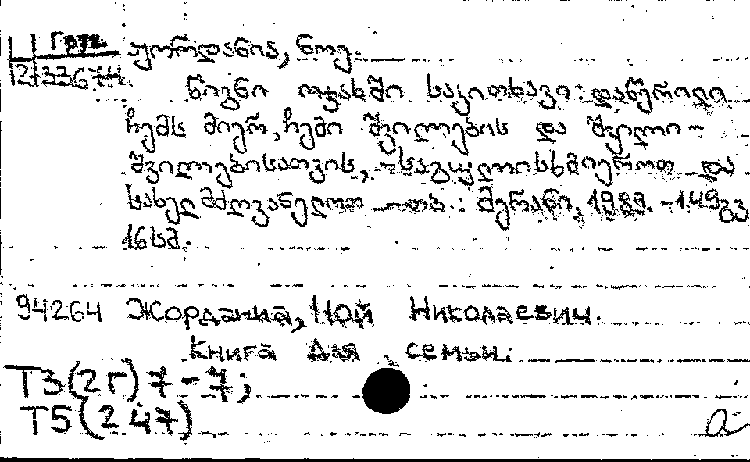 Груз.
ჟორდანია, ნოე.
წიგნი ოჯახში საკითხავი: დაწერილი
ჩემს მიერ, ჩემი შვილების და შვილი-
შვილებისათვის, საგულისხმიეროთ და
სახელმძღვანელოთ — თბ.: მერანი, 1989. - 149გვ
16სმ.
94264 Жордания, Ной Николаевич.
Книга для семьи.
Т3(2Г)7-7;
Т5(247)